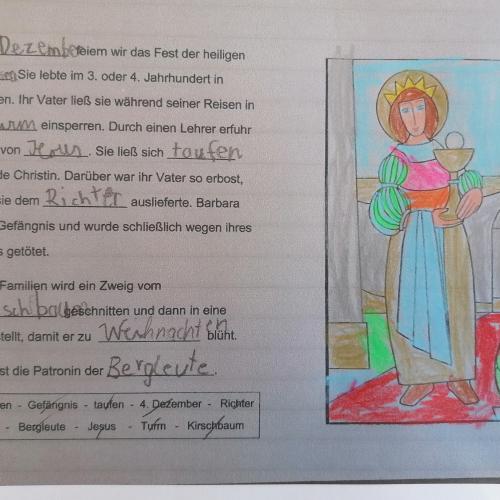 Dezember feiern wir das Fest der heiligen
Sie lebte im 3. oder 4. Jahrhundert in
en. Ihr Vater ließ sie während seiner Reisen in
urm einsperren. Durch einen Lehrer erfuhr
von Jesus. Sie ließ sich taufen
de Christin. Darüber war ihr Vater so erbost,
sie dem Richter auslieferte. Barbara
Gefängnis und wurde schließlich wegen ihres
s getötet.
Familien wird ein Zweig vom
schbaum geschnitten und dann in eine
stellt, damit er zu Weihnachten blüht.
st die Patronin der Bergleute.
en - Gefängnis - taufen - 4. Dezember - Richter
- Bergleute - Jesus - Turm - Kirschbaum